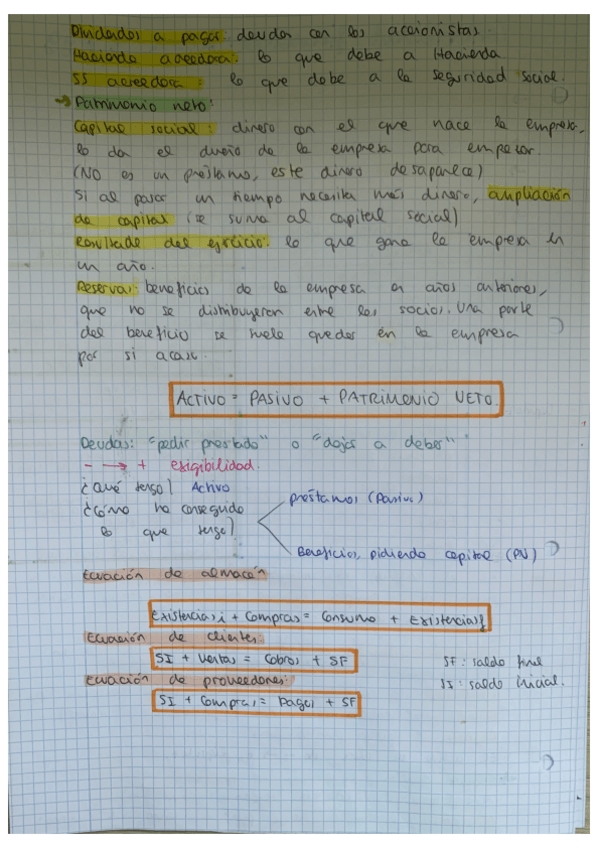 Dividendos a pagar: deudas con los accionistas.
Hacienda acreedora: lo que debe a Hacienda
SS acreedora: lo que debe a la seguridad social.
→ Patrimonio neto:
Capital social: dinero con el que nace la empresa,
lo da el dueño de la empresa para empezar.
(NO es un préstamo, este dinero desaparece)
Si al pasar un tiempo necesita más dinero, ampliación
de capital (se suma al capital social)
Resultado del ejercicio: lo que gana la empresa en
un año.
Reservas: beneficios de la empresa en años anteriores,
que no se distribuyeron entre los socios. Una parte
del beneficio se suele quedar en la empresa
por si acaso.
ACTIVO = PASIVO + PATRIMONIO NETO.
Deudas: "pedir prestado" o "dejas a deber"
- → + exigibilidad.
¿Qué tengo? Activo
¿Cómo he conseguido
lo que tengo?
préstamos (Pasivo)
Beneficios, pidiendo capital (PN)
Ecuación de almacén
Existencias i + Compras = Consumo + Existencias f
Ecuación de clientes:
SI + Ventas = Cobros + SF
SF: saldo final
SI: saldo inicial.
Ecuación de proveedores:
SI + Compras = Pagos + SF